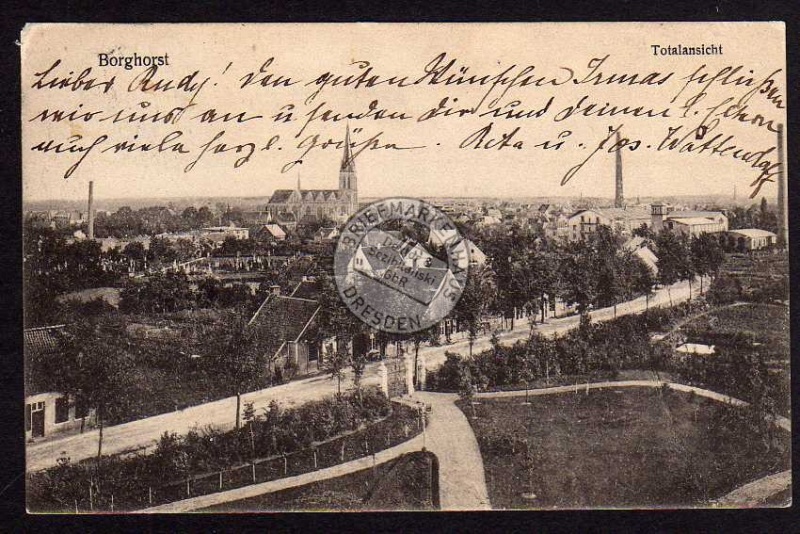 Borghorst
Totalansicht
Lieber Rudy! Den guten Wünschen Irmas schließen
wir uns an u senden dir und deinen l. Eltern
auch viele herzl. Grüße. Reta u. Jos. Wattendorff
BRIEFMARKENHAUS
DRESDEN
GbR